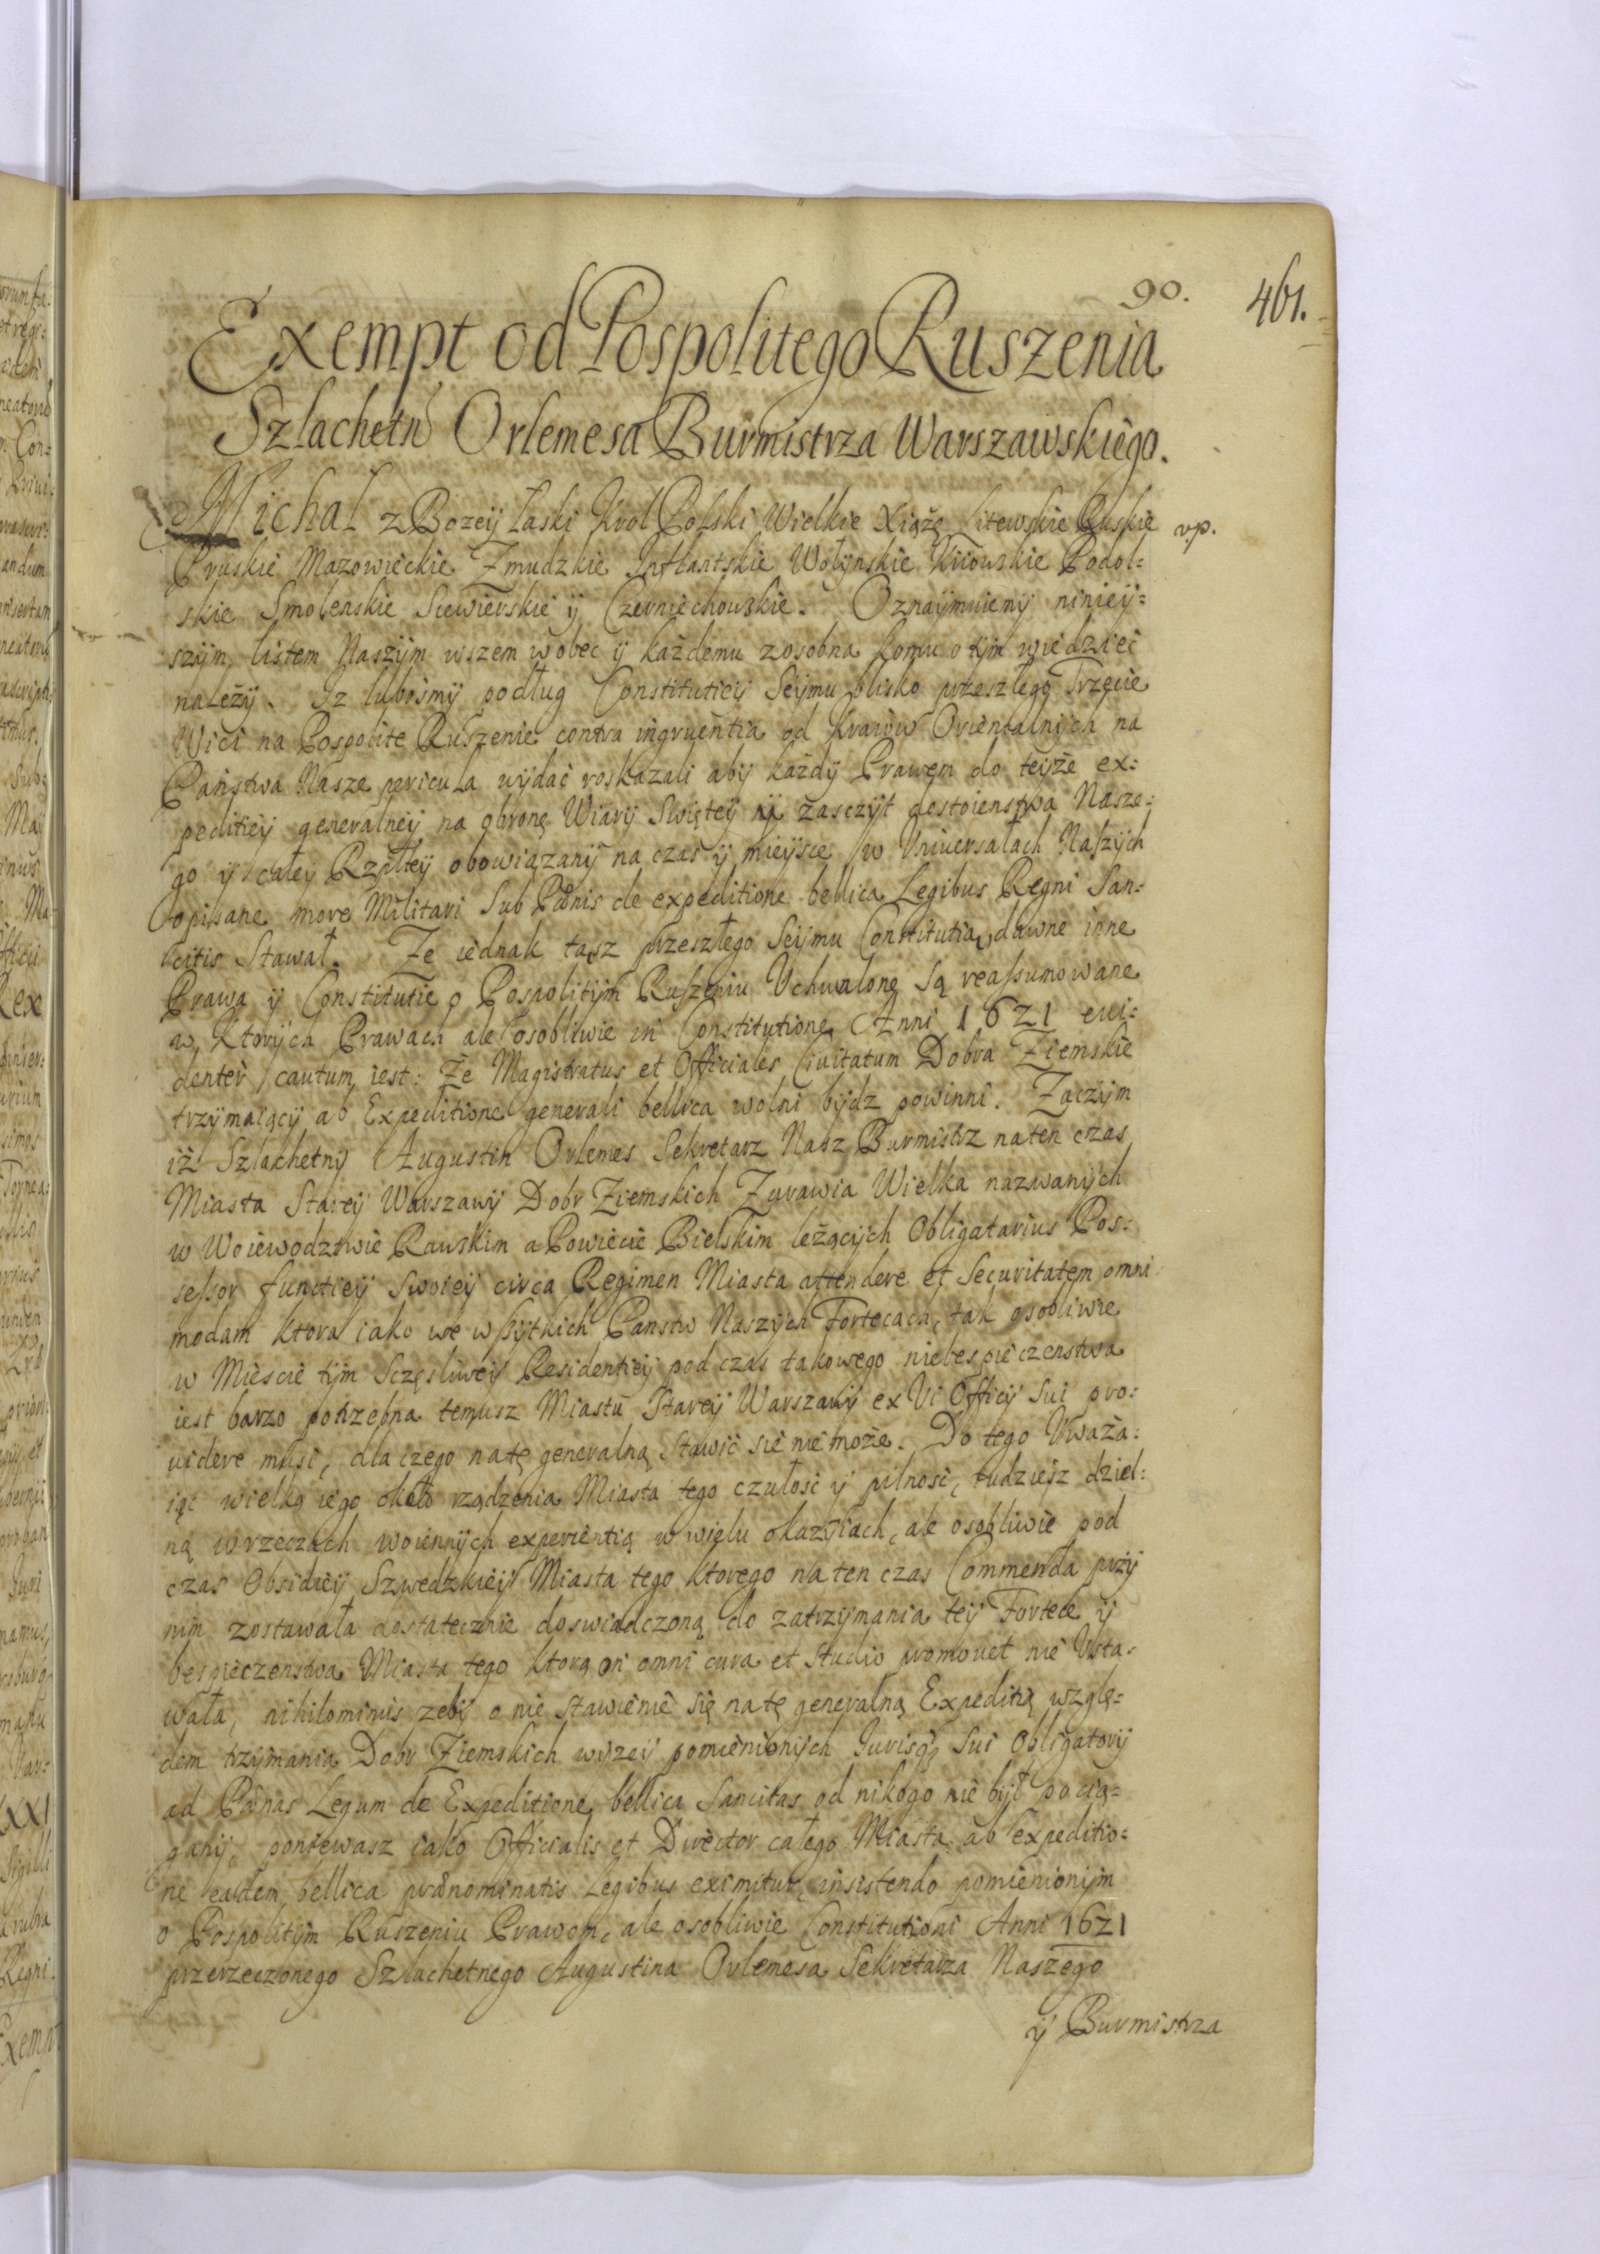 90.
461.
Exempt od Pospolitego Ruszenia
Szlachetn Orlemesa Burmistrza Warszawskiego.
Michał z Bozeij Łaski Krol Polski Wielkie Xiążę Litewskie Ruskie
vp.
Pruskie Mazowieckie Zmudzkie Inflantskie Wołijnskie Kijowskie Podol=
skie Smolenskie Siewierskie ij Czerniechowskie. Oznaijmuiemij niniej=
szijm listem Naszijm wszem wobec ij każdemu zosobna komu o tijm wiedziec
należij. Iż lubosmij podług Constitutieij Seijmu blisko przeszłego Trzecie
Wici na Pospolite Ruszenie contra ingruentia od Kraiow Orientalnijch na
Państwa Nasze pericula wijdać roskazali abij każdij Prawem do teijże ex=
peditieij generalneij na obronę Wiarij Swięteij ij zasczijt dostoienstwa Nasze=
go ij całeij Rzpltеij obowiązanij na czas ij mieijsce w Uniwersałach Naszijch
opisane more Militari sub Pænis de expeditione bellica Legibus Regni San=
citis Stawał. Że iednak tasz przeszłego Seijmu Constitutia, dawne inne
Prawa ij Constitutie o Pospolitijm Ruszeniu Uchwalone są reassumowane
w ktorijch Prawach ale osobliwie in Constitutione Anni 1621 eui=
denter cautum iest: Że Magistratus et Officiales Ciuitatum Dobra Ziemskie
trzijmaiącij ab Expeditione generali bellica wolni bijdz powinni. Zaczijm
iż Szlachetnij Augustin Orlemes Sekretarz Nasz Burmistrz na ten czas
Miasta Stareij Warszawij Dobr Ziemskich Zurawia Wielka nazwanijch
w Woiewodztwie Rawskim a Powiecie Bielskim leżącijch Obligatarius Pos=
sessor functieij swoieij circa Regimen Miasta attendere et Securitatem omni
modam ktora iako we wszijtkich Panstw Naszijch Fortecach, tak osobliwie
w Miescie tijm Sczęsliweij Residentieij pod czas takowego niebespieczenstwa
iest barzo potrzebna temusz Miastu Stareij Warszawij ex Vi Officij sui pro=
uidere musi, dla czego na tę generalną stawić sie nie może. Do tego Uważa=
iąc wielką iego około rządzenia Miasta tego czułosc ij pilnosc, tudziesz dziel=
ną w rzeczach woiennijch experientią w wielu okazijach, ale osobliwie pod
czas Obsidieij Szwedzkieij Miasta tego ktorego na ten czas Commenda przij
nim zostawała dostatecznie doswiadczoną do zatrzijmania teij Fortece ij
bespieczenstwa Miasta tego ktorą on omni cura et studio promouet nie Usta=
wała, nihilominus zebij o nie stawienie się na tę generalną Expeditią wzglę=
dem trzijmania Dobr Ziemskich wijzeij pomienionijch Jurisq sui Obligatorij
ad Pænas Legum de Expeditione bellica Sancitas od nikogo nie bijł pocią=
ganij, poniewasz iako Officialis et Director całego Miasta ab expeditio=
ne eadem bellica prænominatis Legibus eximitur, insistendo pomienionijm
o Pospolitijm Ruszeniu Prawom, ale osobliwie Constitutioni Anni 1621
przerzeczonego Szlachetnego Augustina Orlemesa Sekretarza Naszego
ij Burmistrza